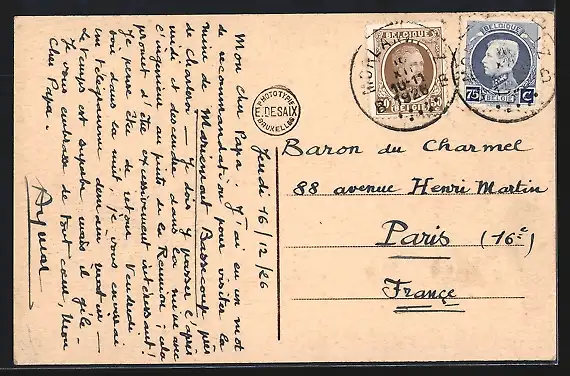 Mon cher Papa. J'ai eu un mot
de recommandation pour visiter la
mine de Mariemont Bascoup près
de Charleroi. J'y dois y passer l'après
midi et descendre dans la mine avec
l'ingénieur au puits de la Réunion ; cela
promet d'être excessivement intéressant !
Je pense être de retour Vendredi
soir dans la nuit. Je vous enverrai
un télégramme demain matin.
Le temps est superbe mais il gèle.
Je vous embrasse de tout cœur, Mon
Cher Papa.
Jeudi 16/12/26
PHOTOTYPIE
E. DESAIX
BRUXELLES
BELGIQUE
BELGIË
1926
BELGIQUE
75 C
BELGIE
Baron du Charmel
88 avenue Henri Martin
Paris (16e)
France